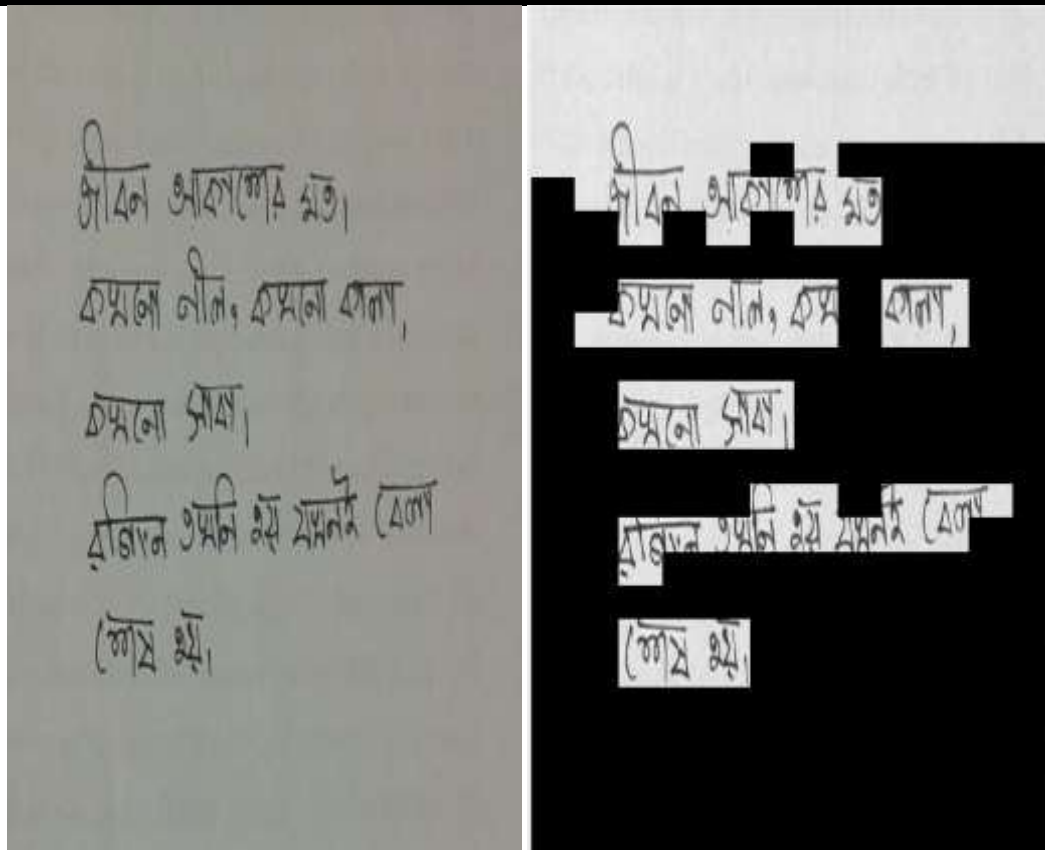 জীবন আকাশের মত।
কখনো নীল, কখনো কালা,
কখনো সাদা।
রঙিন তখনি হয় যখনই বেলা
শেষ হয়।
জীবন আকাশের মত
কখনো নীল, কখ কালা,
কখনো সাদা।
রঙিন তখনি হয় যখনই বেলা
শেষ হয়।